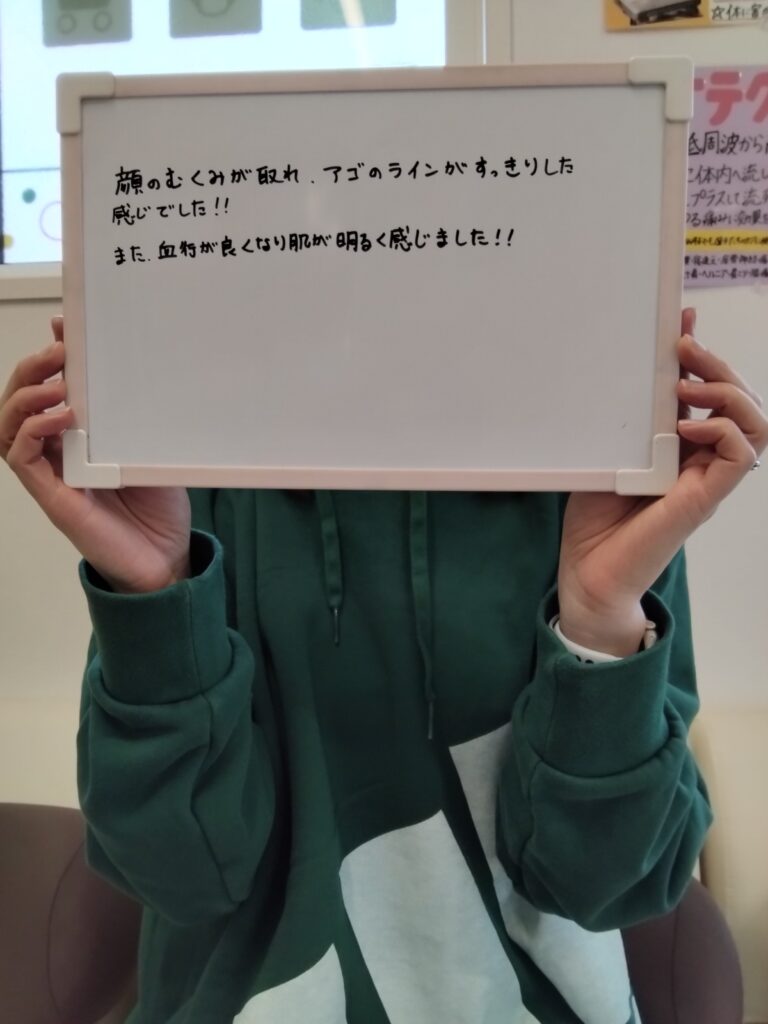 顔のむくみが取れ、アゴのラインがすっきりした
感じでした!!
また、血行が良くなり肌が明るく感じました!!
テク
低周波から
体内へ流し
プラスして流